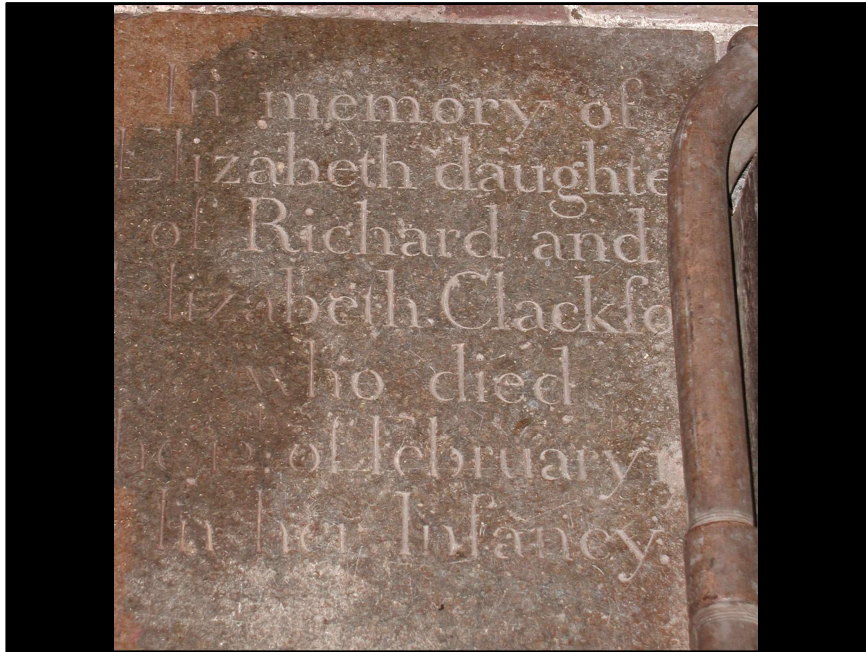 In memory of
Elizabeth daughte
of Richard and
lizabeth Clackfo
who died
of February
In her Infancy.